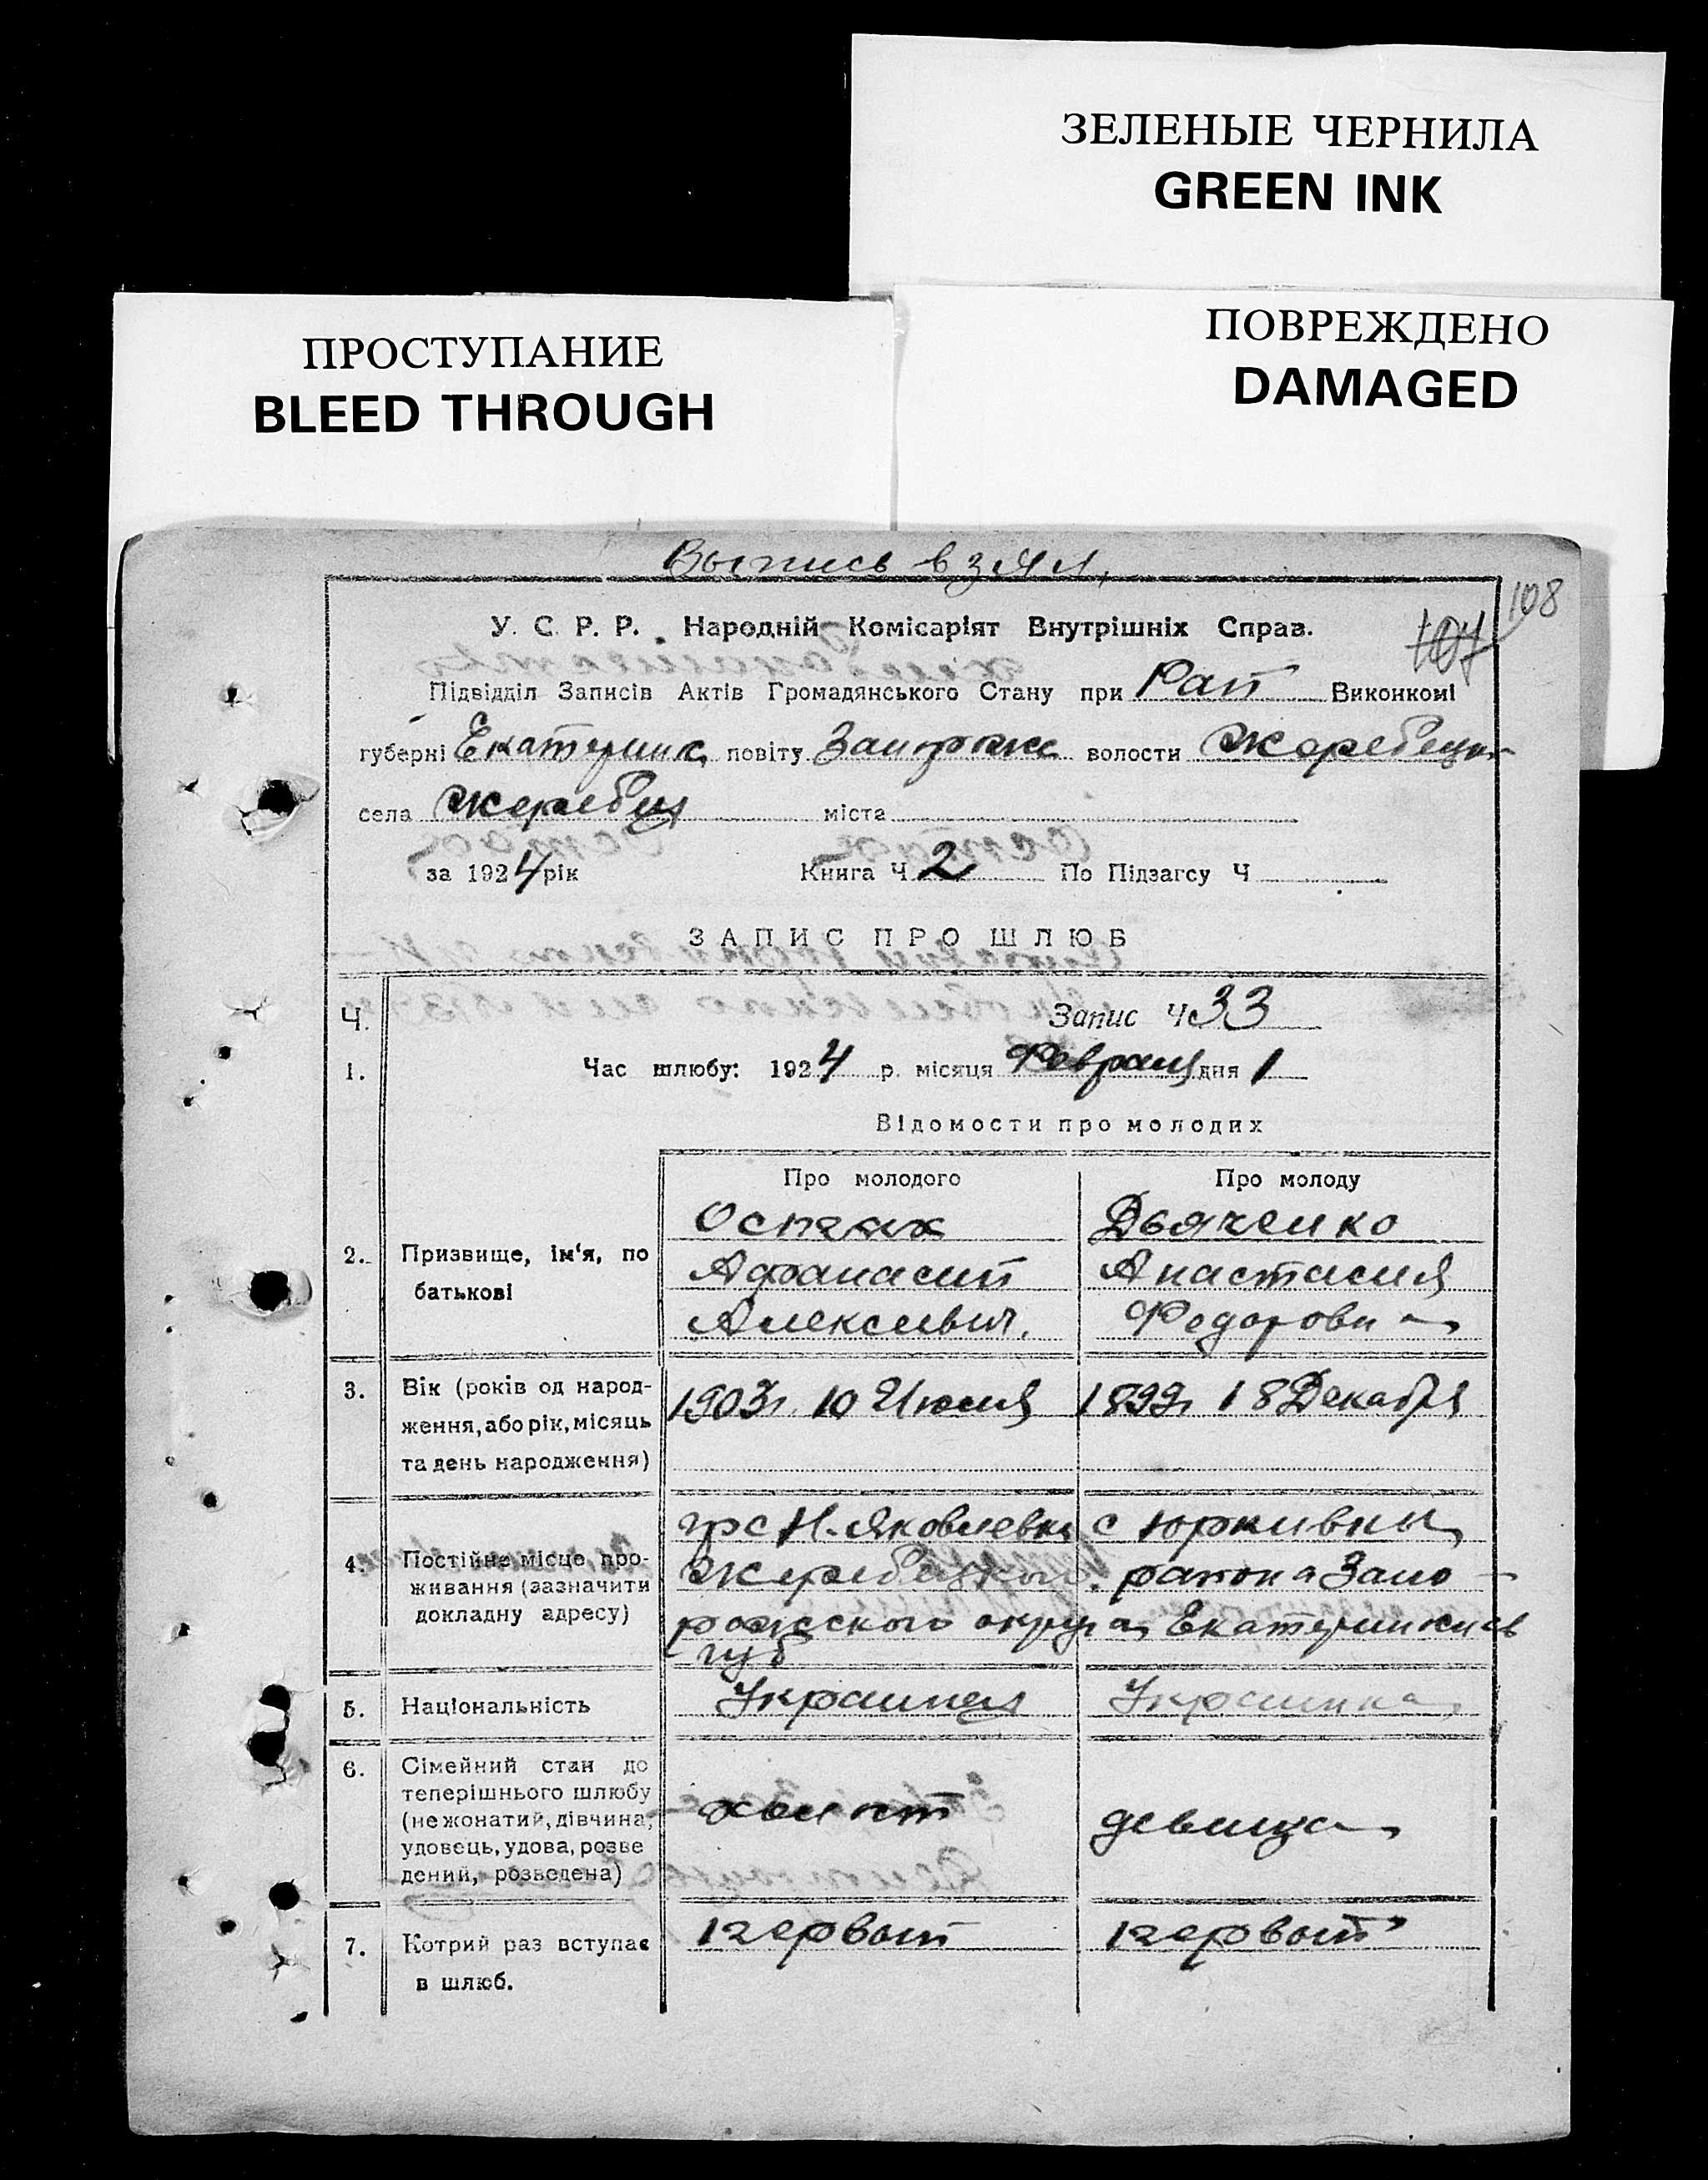 ЗЕЛЕНЫЕ ЧЕРНИЛА
GREEN INK
ПОВРЕЖДЕНО
DAMAGED
ПРОСТУПАНИЕ
BLEED THROUGH
Выпись взял,
108
107
У. С. Р. Р. Народній Комісаріят Внутрішніх Справ.
Підвідділ Записів Актів Громадянського Стану при Рай Виконкомі
губерні Екатерин. повіту Запорож волости Жеребецк
села Жеребец міста
за 1924 рік Книга Ч 2 По Підзагсу Ч
ЗАПИС ПРО ШЛЮБ
Ч. Запис Ч 33
1. Час шлюбу: 1924 р. місяця Февраля дня 1
Відомости про молодих
Про молодого Про молоду
Дьяченко
2. Призвище, ім'я, по Афанасий Анастасия
батькові Алексеевич. Федоровна
3. Вік (років од народ- 1903г. 10 Июля 1899г 18 Декабря
ження, або рік, місяць
та день народження)
гр с Н.-Яковлевка с Юркивки
4. Постійне місце про- Жеребецкого района Запо
живання (зазначити
докладну адресу) рожского округа Екатеринослав
губ
5. Національність Украинец Украинка
6. Сімейний стан до
теперішнього шлюбу
(не жонатий, дівчина, холост девица
удовець, удова, розве
дений, розведена)
7. Котрий раз вступає первый первый
в шлюб.